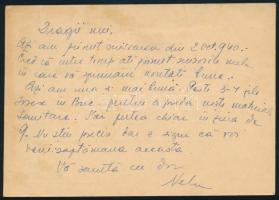 Dragii mei,
Azi am primit scrisoarea din 2 oct. 940.-
Cred că între timp ați primit scrisorile mele
în care vă spuneam noutăți bune.
Azi am una și mai bună. Peste 3-4 zile
în Buc. pentru a niște materiale
sanitare. Voi putea chiar în ziua de
9. Nu știu precis dar e sigur că voi
veni săptămâna aceasta
Vă sărută cu dor
Nelu